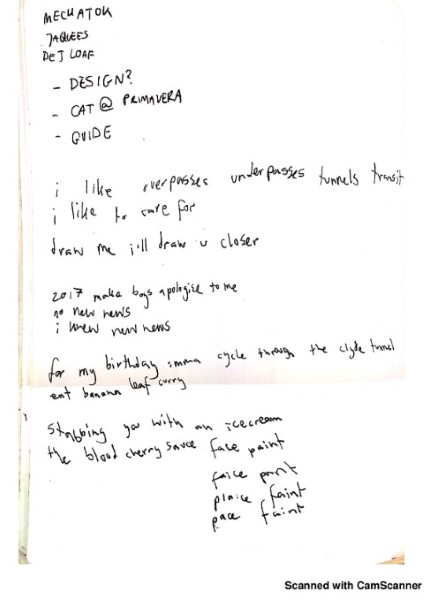 MECHATOK
JAQUEES
DEJ LOAF
- DESIGN?
- CAT @ PRIMAVERA
- GUIDE
i like overpasses underpasses tunnels transit
i like to care for
draw me i'll draw u closer
2017 make boys apologise to me
no new news
i knew new news
for my birthday imma cycle through the clyde tunnel
eat banana leaf curry
stabbing you with an icecream
the blood cherry sauce face paint
faice paint
plaice faint
pace faint
Scanned with CamScanner